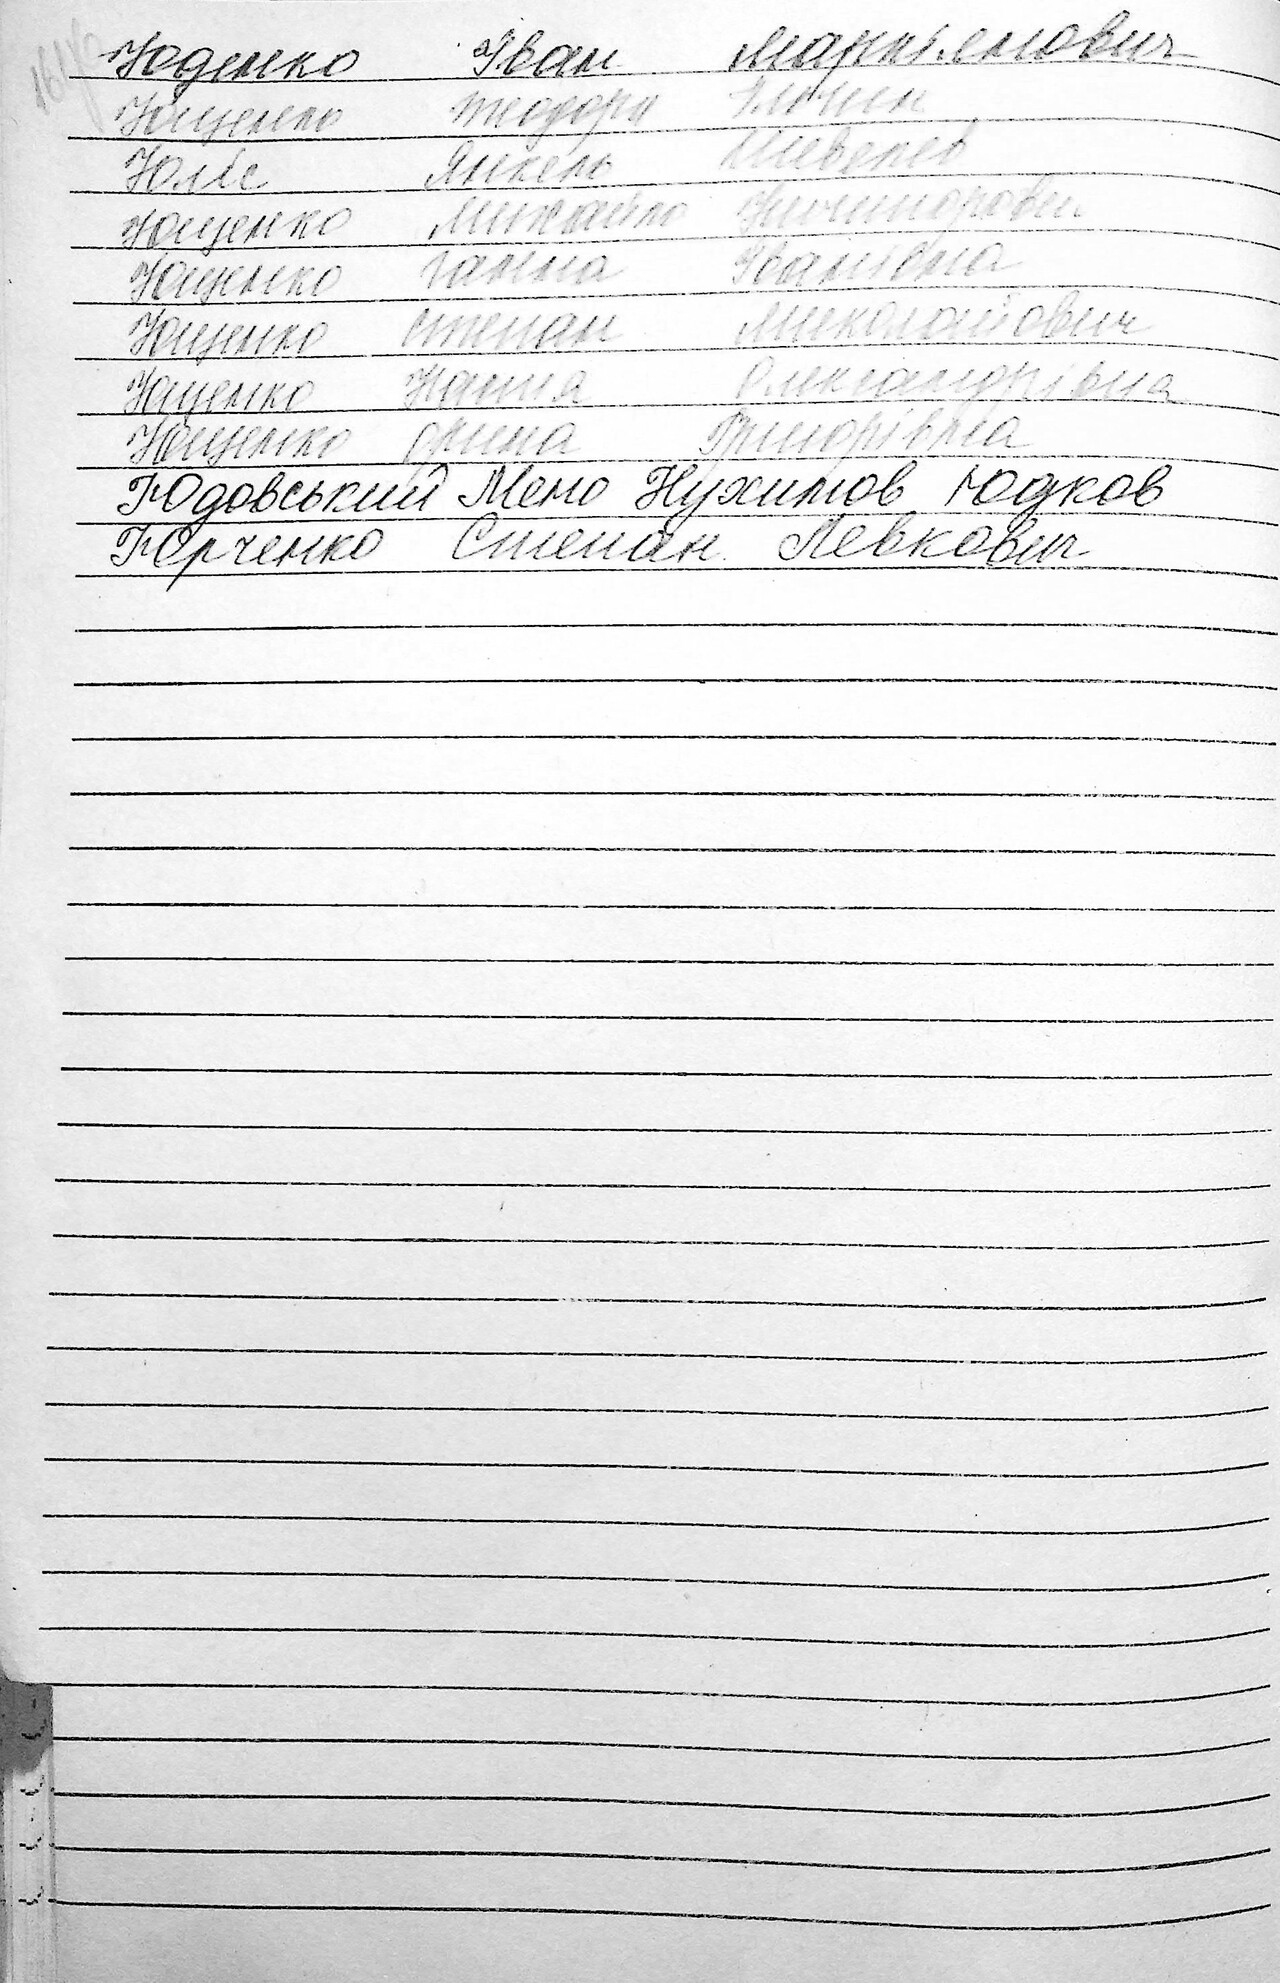 Юденко Іван
Ющенко Теодора
Юліс Янкель Шевелев
Ющенко Михайло Никифорович
Ющенко Ганна Іванівна
Ющенко Степан Миколайович
Ющенко Настя Олександрівна
Ющенко Орина Григорівна
Юдовський Мено Нухимов Юдков
Юрченко Степан Левкович